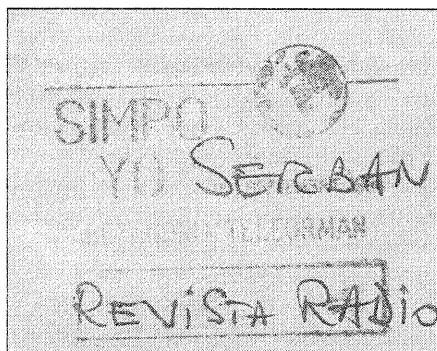 SIMPO
YO SERBAN
TELEORMAN
REVISTA RADIO